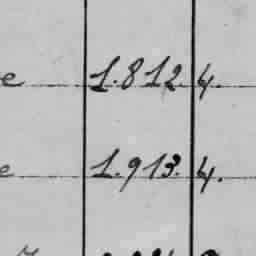 e 1.812. 4.
e 1.913. 4.